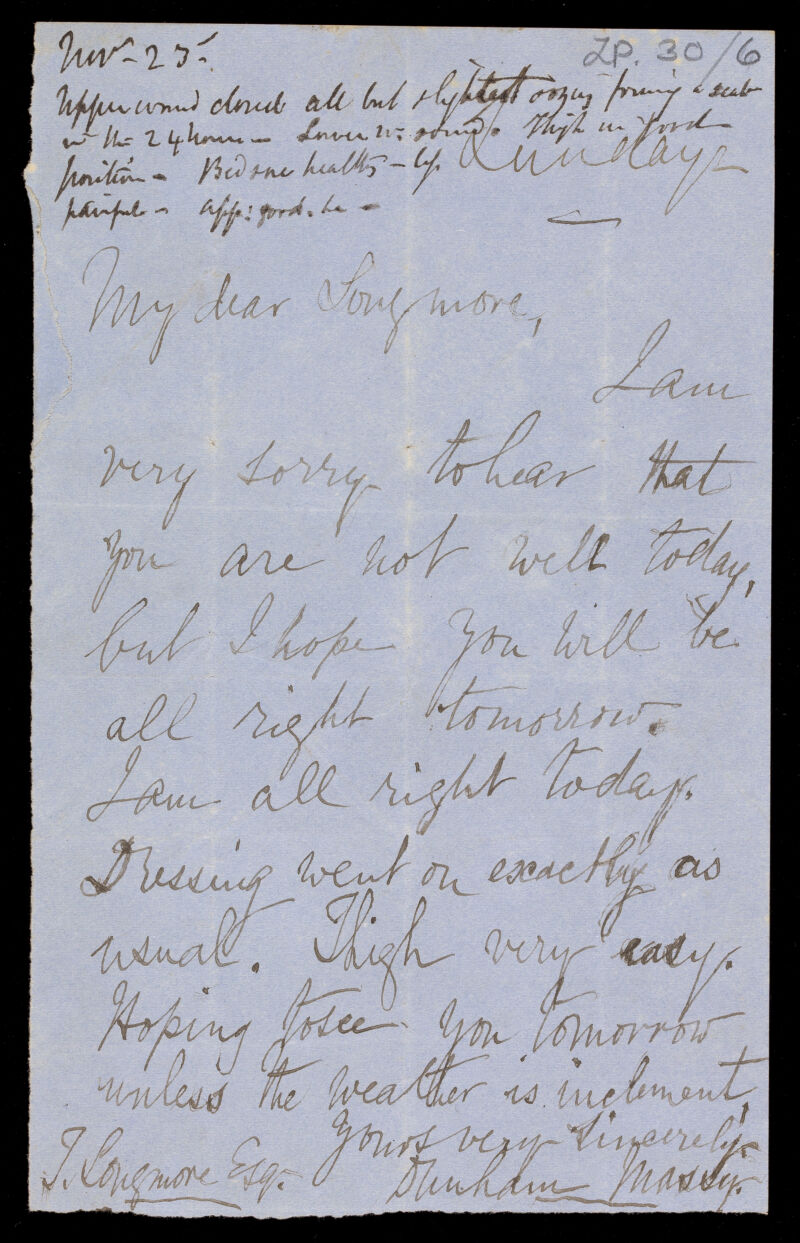 Nov - 25 -
LP. 30/6
Upper wound closed all but slightest oozing forming a scab
in the 24 hours - Lower w: sound. Thigh in good
Sunday
position - Bedsore healthy - less
painful - app: good. he -
My dear Longmore,
I am
very sorry to hear that
you are not well today,
but I hope you will be
all right tomorrow.
I am all right today.
Dressing went on exactly as
usual. Thigh very easy.
Hoping to see you tomorrow
unless the weather is inclement,
Yours very sincerely.
T. Longmore Esq.
Dunham Massy.